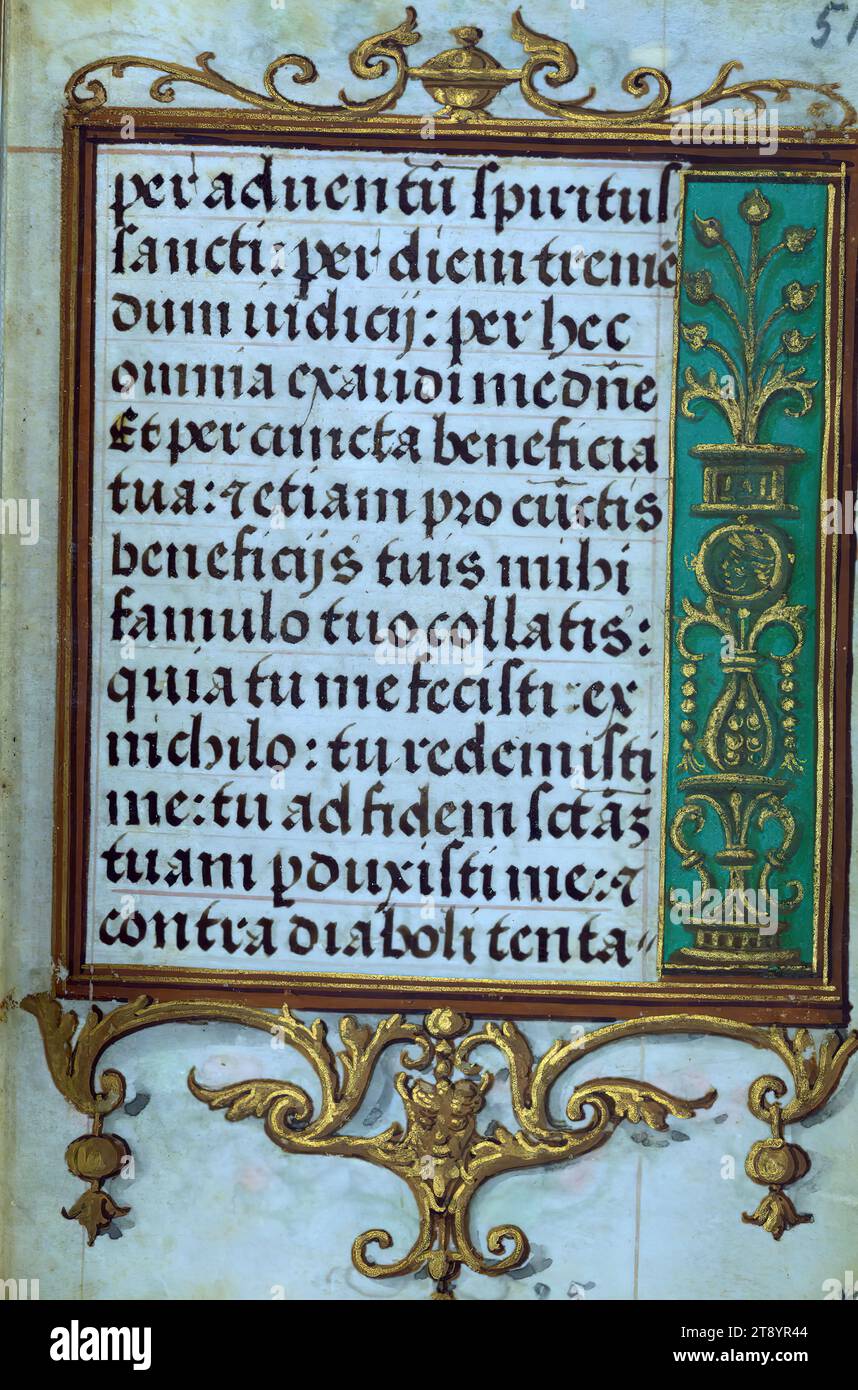 51
per aduentū spiritus
sancti: per diem tremē
dum iudicij: per hec
omnia exaudi me dn̄e
Et per cuncta beneficia
tua: ⁊ etiam pro cūctis
beneficijs tuis mihi
famulo tuo collatis:
quia tu me fecisti: ex
nichilo: tu redemisti
me: tu ad fidem sctāꝫ
tuam ꝑduxisti me: ⁊
contra diaboli tenta〃
alamy
Image ID: 2T8YR44
www.alamy.com